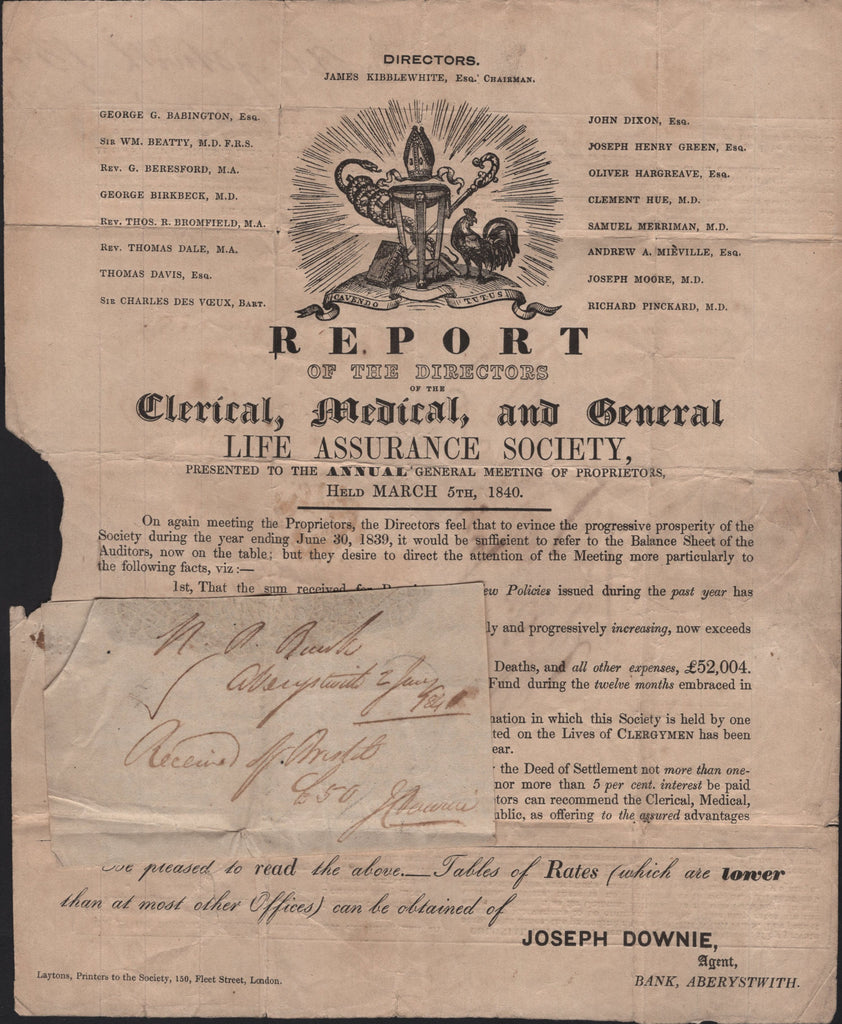 DIRECTORS.
JAMES KIBBLEWHITE, Esq. Chairman.
GEORGE G. BABINGTON, Esq.
Sir WM. BEATTY, M.D. F.R.S.
Rev. G. BERESFORD, M.A.
GEORGE BIRKBECK, M.D.
Rev. THOS. R. BROMFIELD, M.A.
Rev. THOMAS DALE, M.A.
THOMAS DAVIS, Esq.
Sir CHARLES DES VŒUX, Bart.
JOHN DIXON, Esq.
JOSEPH HENRY GREEN, Esq.
OLIVER HARGREAVE, Esq.
CLEMENT HUE, M.D.
SAMUEL MERRIMAN, M.D.
ANDREW A. MIÈVILLE, Esq.
JOSEPH MOORE, M.D.
RICHARD PINCKARD, M.D.
CAVENDO TUTUS
REPORT
OF THE DIRECTORS
OF THE
Clerical, Medical, and General
LIFE ASSURANCE SOCIETY,
PRESENTED TO THE ANNUAL GENERAL MEETING OF PROPRIETORS,
Held MARCH 5th, 1840.
On again meeting the Proprietors, the Directors feel that to evince the progressive prosperity of the
Society during the year ending June 30, 1839, it would be sufficient to refer to the Balance Sheet of the
Auditors, now on the table; but they desire to direct the attention of the Meeting more particularly to
the following facts, viz:—
1st, That the sum received for New Policies issued during the past year has
ly and progressively increasing, now exceeds
Deaths, and all other expenses, £52,004.
Fund during the twelve months embraced in
nation in which this Society is held by one
ted on the Lives of Clergymen has been
ear.
the Deed of Settlement not more than one-
nor more than 5 per cent. interest be paid
tors can recommend the Clerical, Medical,
ublic, as offering to the assured advantages
Aberystwith 2 Jany
Received of
£50
Be pleased to read the above.—Tables of Rates (which are lower
than at most other Offices) can be obtained of
JOSEPH DOWNIE,
Agent,
BANK, ABERYSTWITH.
Laytons, Printers to the Society, 150, Fleet Street, London.